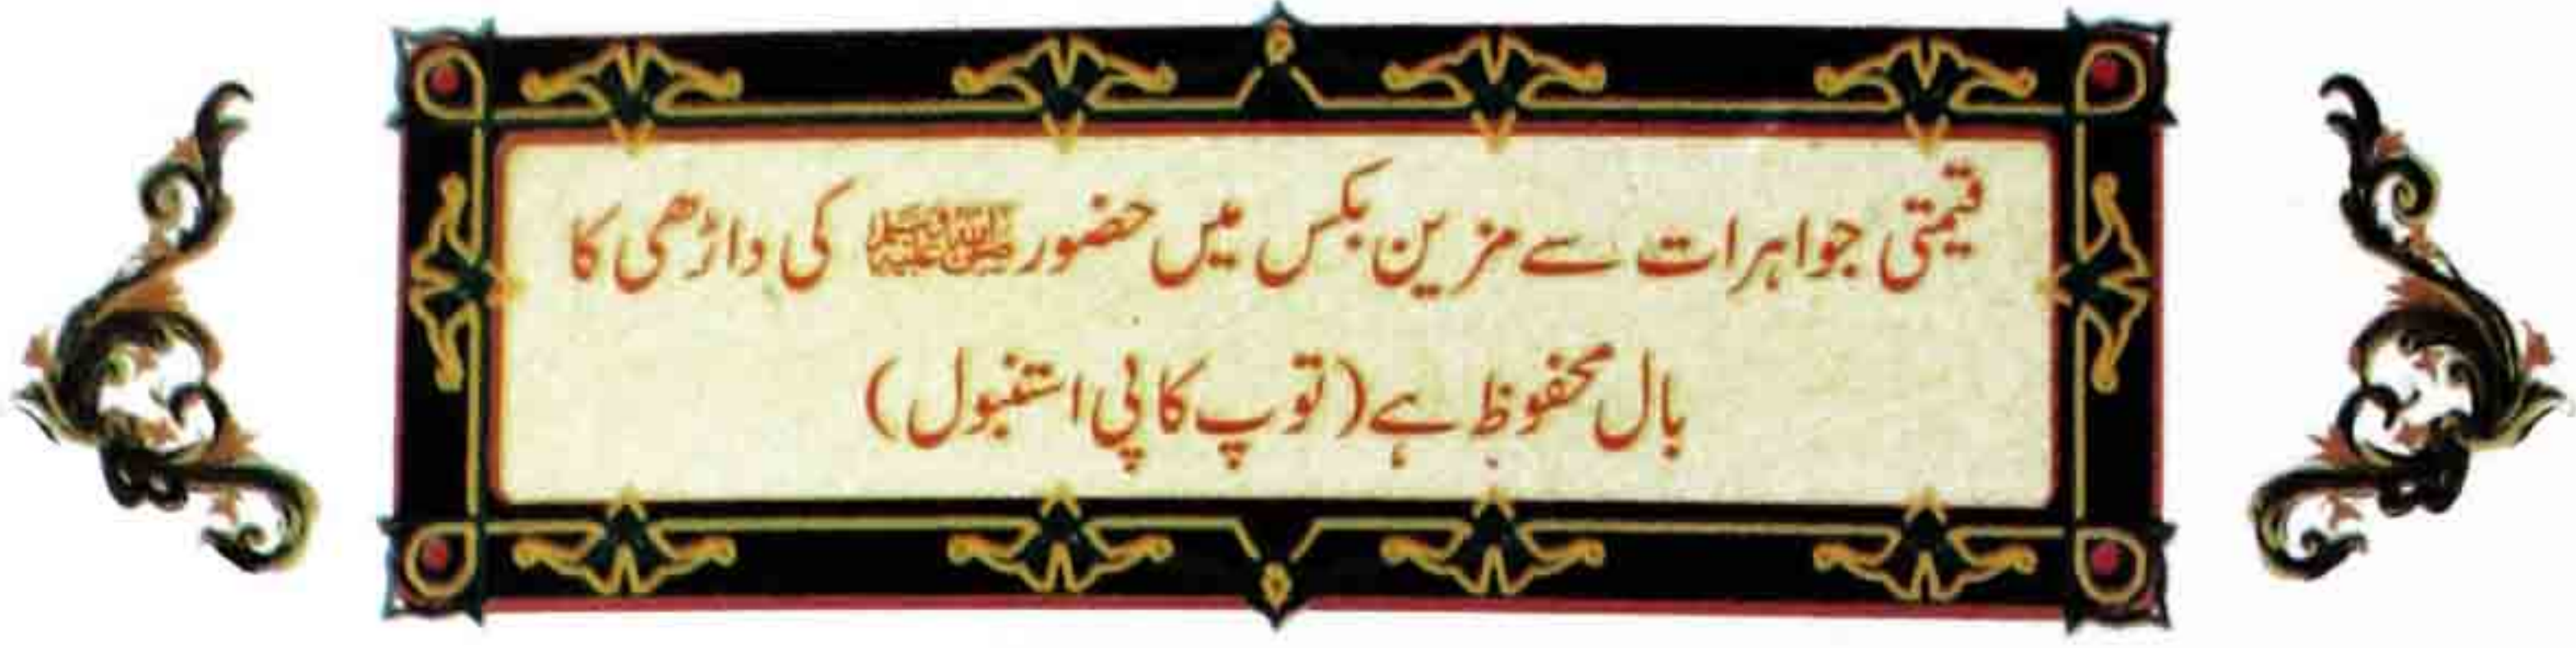 قیمتی جواہرات سے مزین بکس میں حضور ﷺ کی داڑھی کا
بال محفوظ ہے (توپ کاپی استنبول)